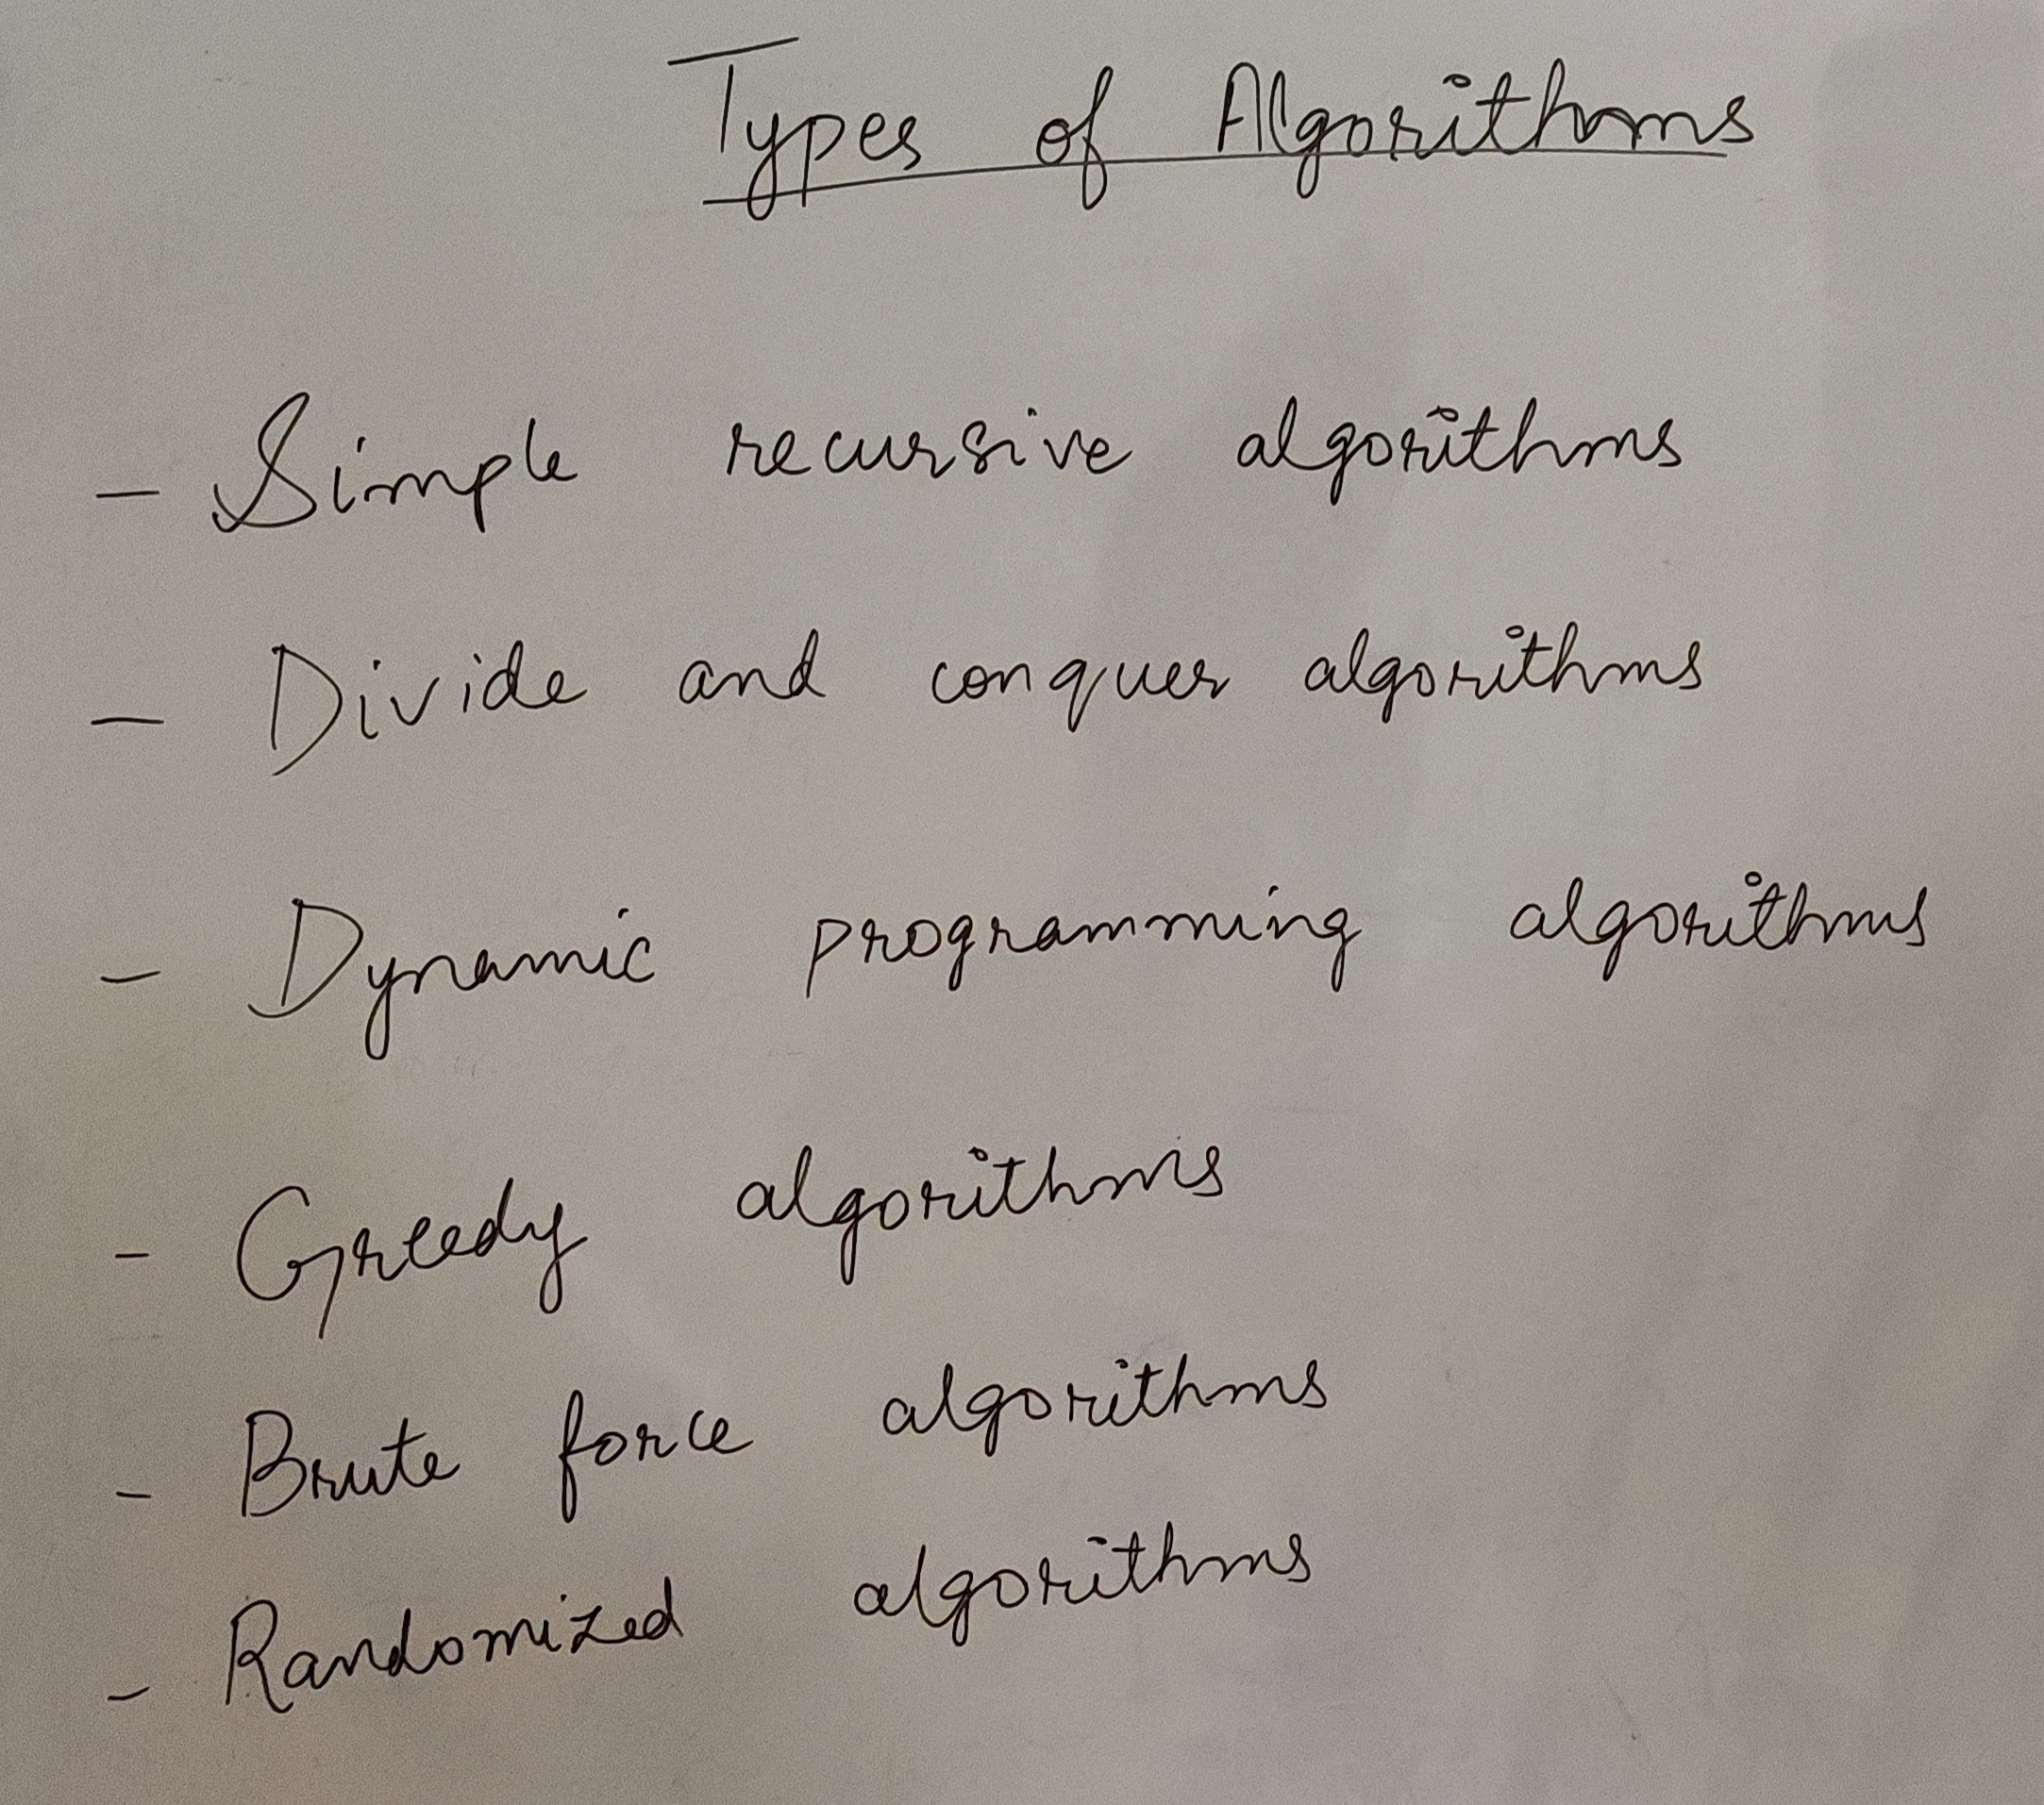 Types of Algorithms
- Simple recursive algorithms
- Divide and conquer algorithms
- Dynamic programming algorithms
- Greedy algorithms
- Brute force algorithms
- Randomized algorithms